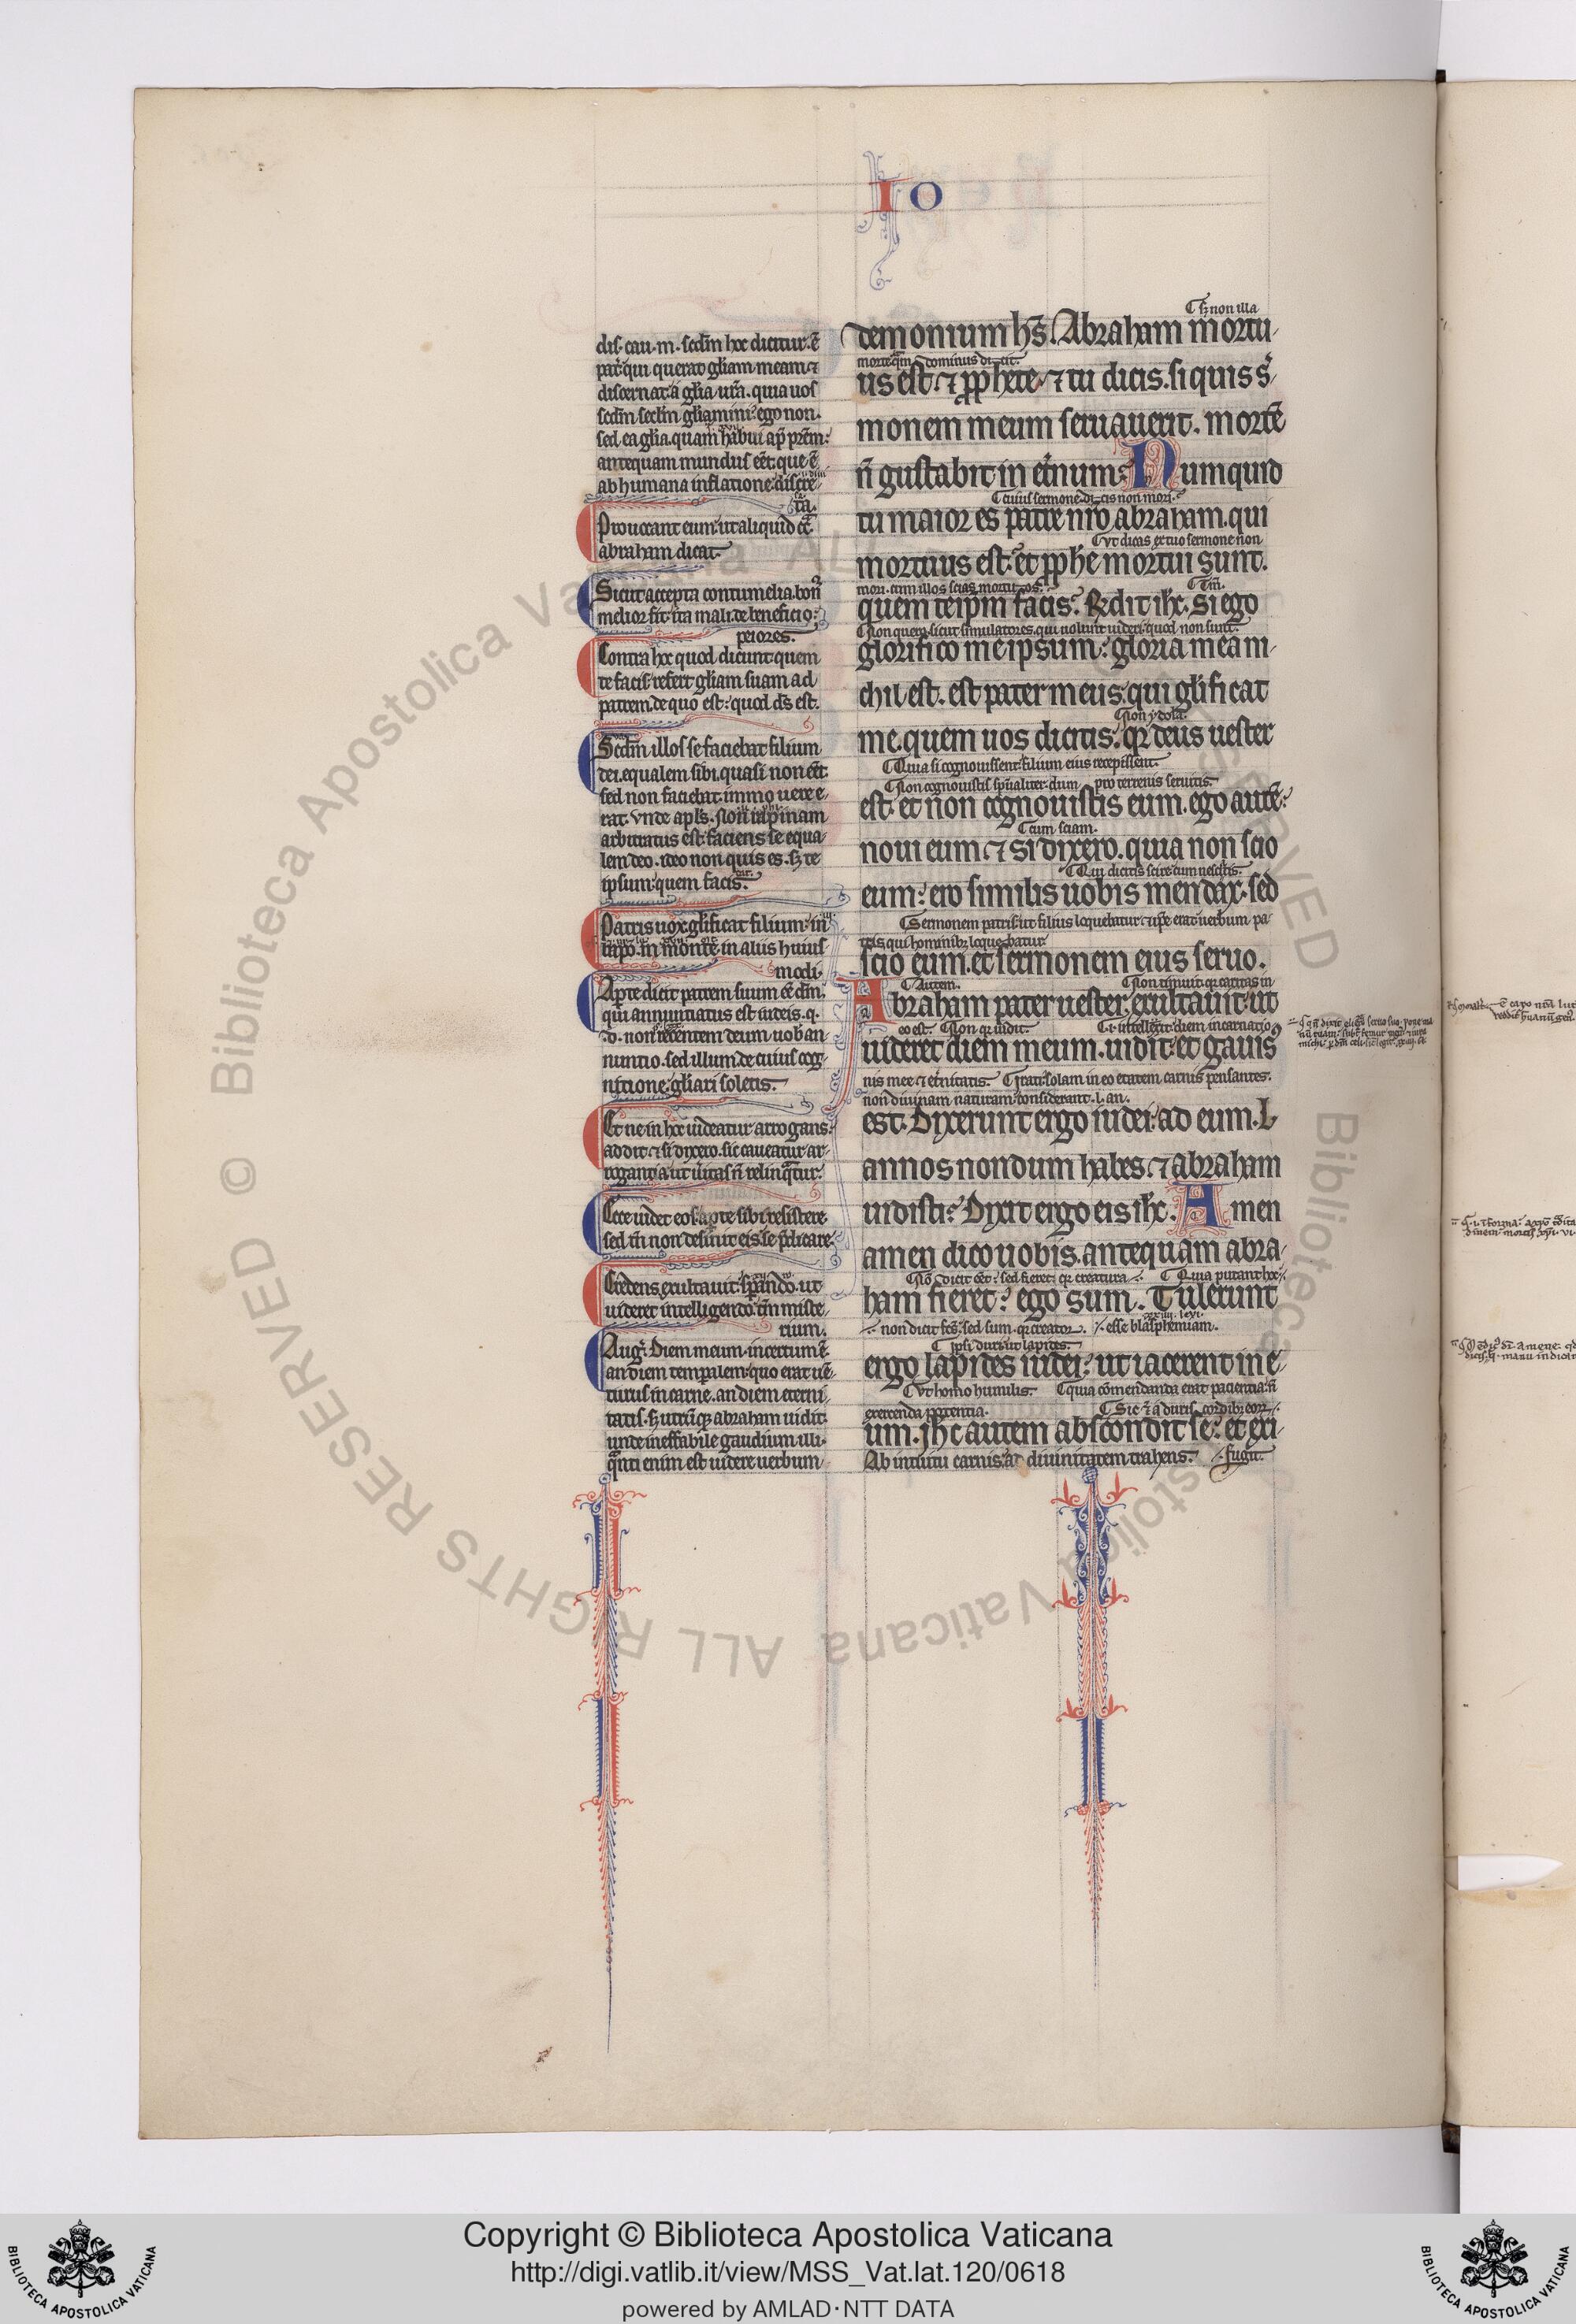 IO
dis. cau. m. scďm hoc dicitur. ē
pat̄. qui querat gl̄iam meam ⁊
discernat a gl̄ia ur̄a. quia uos
scďm secl̄m gl̄iamini. ego non.
sed ea gl̄ia. quam habui ap̄ pr̄em.
antequam mundus eēt. que ē
ab humana inflatione discre
ta.
Prouocant eum. ut aliquid ctͣ
abraham dicat.
Sicut accepta contumelia. bon᷒
melior fit. ita mali. de beneficio
peiores.
Contra hoc quod dicunt quem
te facis. refert gl̄iam suam ad
patrem. de quo est. quod d̄s est.
Scďm illos se faciebat filium
dei. equalem sibi. quasi non eēt.
sed non faciebat. immo uere e
rat. Vnde apl̄s. Non rapinam
arbitratus est. faciens se equa
lem deo. ideo non quis es. sꝫ te
ipsum quem facis.
Patris uox gl̄ificat filium. in
bapt̄o. in monte. in aliis huius
modi.
Aperte dicit patrem suum eē d̄m.
qui annuntiatus est iudeis. q.
d. non recentem deum uobis an
nuntio. sed illum. de cuius cog
nitione. gl̄iari soletis.
Et ne in hoc uideatur arrogans.
addit. ⁊ si dixero. sic caueatur ar
rogantia. ut ueritas n̄ relinquatur.
Ecce uidet eos aperte sibi resistere.
sed tn̄ non desinit eis se p̄dicare.
Credens exultauit. sperando. ut
uideret intelligendo. tm̄ miste
rium.
Aug᷒. Diem meum. incertum ē.
an diem temporalem. quo erat uē
turus in carne. an diem eterni
tatis. sꝫ utrūqꝫ abraham uidit.
unde ineffabile gaudium illi.
quanti enim est uidere uerbum
sꝫ non illa
demonium hēs. Abraham mortu
morte quam dominus dicit.
us est. ⁊ ꝓphete. ⁊ tu dicis. si quis s̄
monem meum seruauerit. mortē
n̄ gustabit in et̄num. Numquid
cuius sermone dicis non mori.
tu maior es patre nr̄o abraham. qui
Vt dicas ex tuo sermone non
mortuus est. et ꝓphe mortui sunt.
mori. cum illos scias mortuos. Tm̄.
quem teipm̄ facis. R̄dit ih̄c. Si ego
Non quero sicut simulatores. qui uolunt uideri quod non sunt.
glorifico meipsum. gloria mea ni
chil est. est pater meus. qui gl̄ificat
Non ydola.
me. quem uos dicitis. qr deus uester
Quia si cognouissent. filium eius recepissent.
Non cognouistis sp̄ualiter. dum pro terrenis seruitis.
est. et non cognouistis eum. ego autē
cum sciam.
noui eum. ⁊ si dixero. quia non scio
Qui dicitis scire cum nescitis.
eum. ero similis uobis mendax. sed
Sermonem patris ut filius loquebatur. ⁊ ipse erat uerbum pa
tris qui hominibꝫ loquebatur.
scio eum. et sermonem eius seruo.
Autem. Non timuit. qr caritas in
Abraham pater uester. exultauit. ut
eo est. Non qr uidit. .i. intelligeret diem incarnatio
uideret diem meum. uidit. et gauis᷒
nis mee. ⁊ et̄nitatis. Irati. solam in eo etatem carnis pensantes.
non diuinam naturam considerant. l. an.
est. Dixerunt ergo iudei. ad eum. L
annos nondum habes. ⁊ abraham
uidisti. Dixit ergo eis ih̄c. Amen
amen dico uobis. antequam abra
Nō dicit eēt. sed fieret. qr creatura. Quia putant hoc
ham fieret. ego sum. Tulerunt
non dicit fc̄s. sed sum. qr creator. esse blasphemiam.
ipsi duri ut lapides.
ergo lapides iudei. ut iacerent in e
Vt homo humilis. quia comendanda erat pacientia. n̄
exercenda potentia. Sic ⁊ a duris cordibꝫ eorum
um. Jh̄c autem abscondit se. et exi
Ab intuitu carnis ad diuinitatem trahens. fugit.
Copyright © Biblioteca Apostolica Vaticana
http://digi.vatlib.it/view/MSS_Vat.lat.120/0618
powered by AMLAD·NTT DATA
BIBLIOTECA APOSTOLICA VATICANA
BIBLIOTECA APOSTOLICA VATICANA
Biblioteca Apostolica Vaticana ALL RIGHTS RESERVED ©